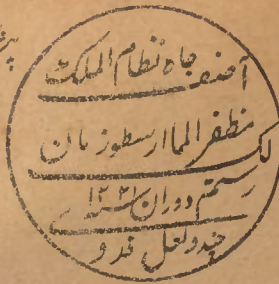 آصف جاه نظام الملک
مظفر الممالک ارسطو زمان
رستم دوران ۱۲۳۱
چندو لعل فدو